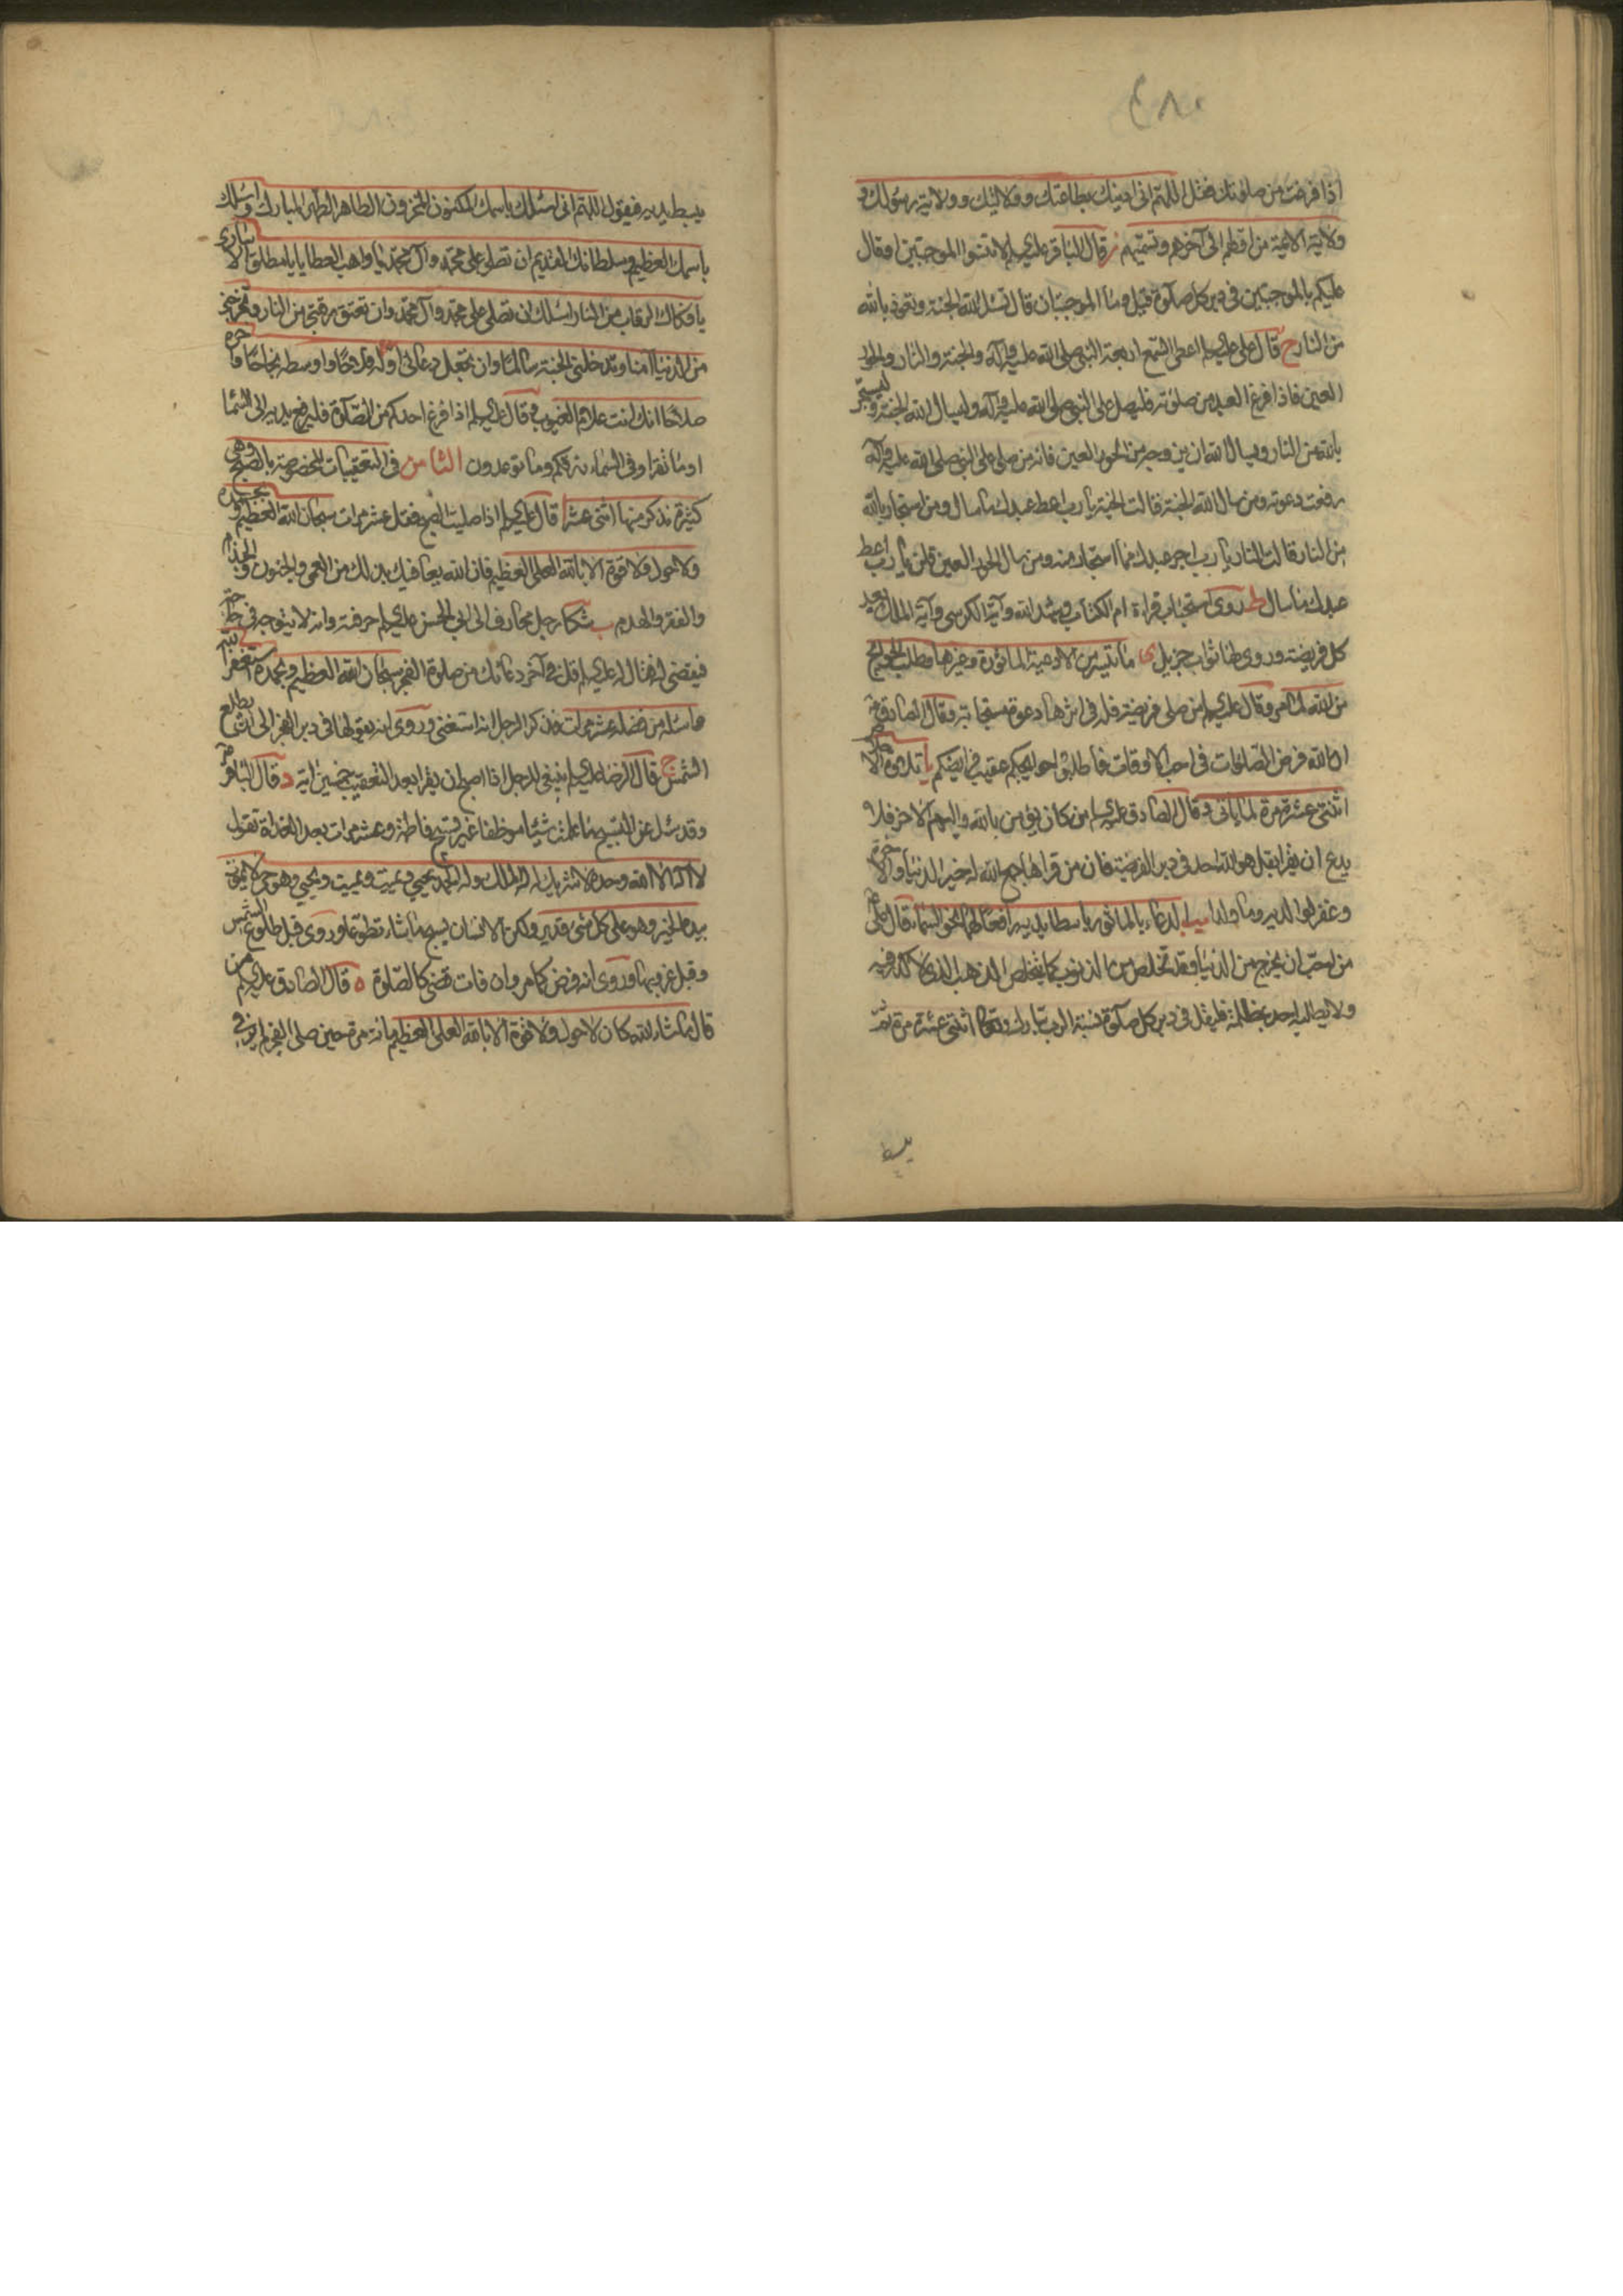 ٤٨٠
اذا فرغت من صلوتك فقل اللهم انى ادينك بطاعتك وولايتك وولاية رسولك و
ولاية الائمة من اولهم الى آخرهم وتسميهم ز قال الباقر عليه السلم لا تنسوا الموجبتين او قال
عليكم بالموجبتين فى دبر كل صلوة قيل وما الموجبتان قال تسئل الله الجنة وتعوذ بالله
من النار ح قال على عليه السلم اعطى السمع اربعة النبى صلى الله عليه وآله والجنة والنار والحور
العين فاذا فرغ العبد من صلوته فليصل على النبى صلى الله عليه وآله وليسال الله الجنة وليستجر
بالله من النار ويسال الله ان يزوجه من الحور العين فانه من صلى على النبى صلى الله عليه وآله
رفعت دعوته ومن سال الله الجنة قالت الجنة يا رب اعط عبدك ما سال ومن استجار بالله
من النار قالت النار يا رب اجر عبدك مما استجار منه ومن سال الحور العين قلن يا رب اعط
عبدك ما سال ط روى استحباب قراءة ام الكتاب وشهد الله وآية الكرسى وآية الملك بعد
كل فريضة وروى لها ثواب جزيل ى ما تيسر من الادعية الماثورة وغيرها وطلب الحوائج
من الله لما مر وقال عليه السلم من صلى فريضة فله فى اثرها دعوة مستجابة وقال الصادق ع
ان الله فرض الصلوات فى احب الاوقات فاطلبوا حوائجكم عقيب فرائضكم يا تلاوة الاخلاص
اثنتى عشرة مرة لما ياتى وقال الصادق عليه السلم من كان يؤمن بالله واليوم الاخر فلا
يدع ان يقرا بقل هو الله احد فى دبر الفريضة فان من قراها جمع الله له خير الدنيا والاخرة
وغفر له ولوالديه وما ولدا يب الدعاء بالماثور باسطا يديه رافعا لهما نحو السماء قال على ع
من احب ان يخرج من الدنيا وقد تخلص من الذنوب كما يتخلص الذهب الذى لا كدر فيه
ولا يطالبه احد بمظلمة فليقل فى دبر كل صلوة نسبة الرب تبارك وتعالى اثنتى عشرة مرة ثم
يبسط
يبسط يديه فيقول اللهم انى اسئلك باسمك المكنون المخزون الطاهر الطهر المبارك واسئلك
باسمك العظيم وسلطانك القديم ان تصلى على محمد وآل محمد يا واهب العطايا يا مطلق الاسارى
يا فكاك الرقاب من النار اسئلك ان تصلى على محمد وآل محمد وان تعتق رقبتى من النار وتخرجنى
من الدنيا آمنا وتدخلنى الجنة سالما وان تجعل دعائى اوله فلاحا واوسطه نجاحا وآخره
صلاحا انك انت علام الغيوب يج قال عليه السلم اذا فرغ احدكم من الصلوة فليرفع يديه الى السماء
اوما تقرا وفى السماء رزقكم وما توعدون الثامن فى التعقيبات المخصوصة بالصبح وهى
كثيرة نذكر منها اثنى عشر ا قال عليه السلم اذا صليت الصبح فقل عشر مرات سبحان الله العظيم وبحمده
ولا حول ولا قوة الا بالله العلى العظيم فان الله يعافيك بذلك من العمى والجنون والجذام
والفقر والهدم ب شكا رجل محارف الى ابى الحسن عليه السلم حرفته وانه لا يتوجه فى حاجة
فيقضى له فقال له عليه السلم قل فى آخر دعائك من صلوة الفجر سبحان الله العظيم وبحمده استغفر الله
واسئله من فضله عشر مرات فذكر الرجل انه استغنى وروى انه يقولها فى دبر الفجر الى ان تطلع
الشمس ج قال الرضا عليه السلم ينبغى للرجل اذا اصبح ان يقرا بعد التعقيب خمسين اية د قال الباقر ع
وقد سئل عن التسبيح ما علمت شيئا موظفا غير تسبيح فاطمة وعشر مرات بعد الغداة تقول
لا اله الا الله وحده لا شريك له له الملك وله الحمد يحيى ويميت ويميت ويحيى وهو حى لا يموت
بيده الخير وهو على كل شىء قدير ولكن الانسان يسبح ما شاء تطوعا وروى قبل طلوع الشمس
وقبل غروبها وروى انه فرض كما مر وان فات قضى كالصلوة ه قال الصادق عليه السلم من
قال ما شاء الله كان لا حول ولا قوة الا بالله العلى العظيم مائة مرة حين صلى الفجر لم ير فى